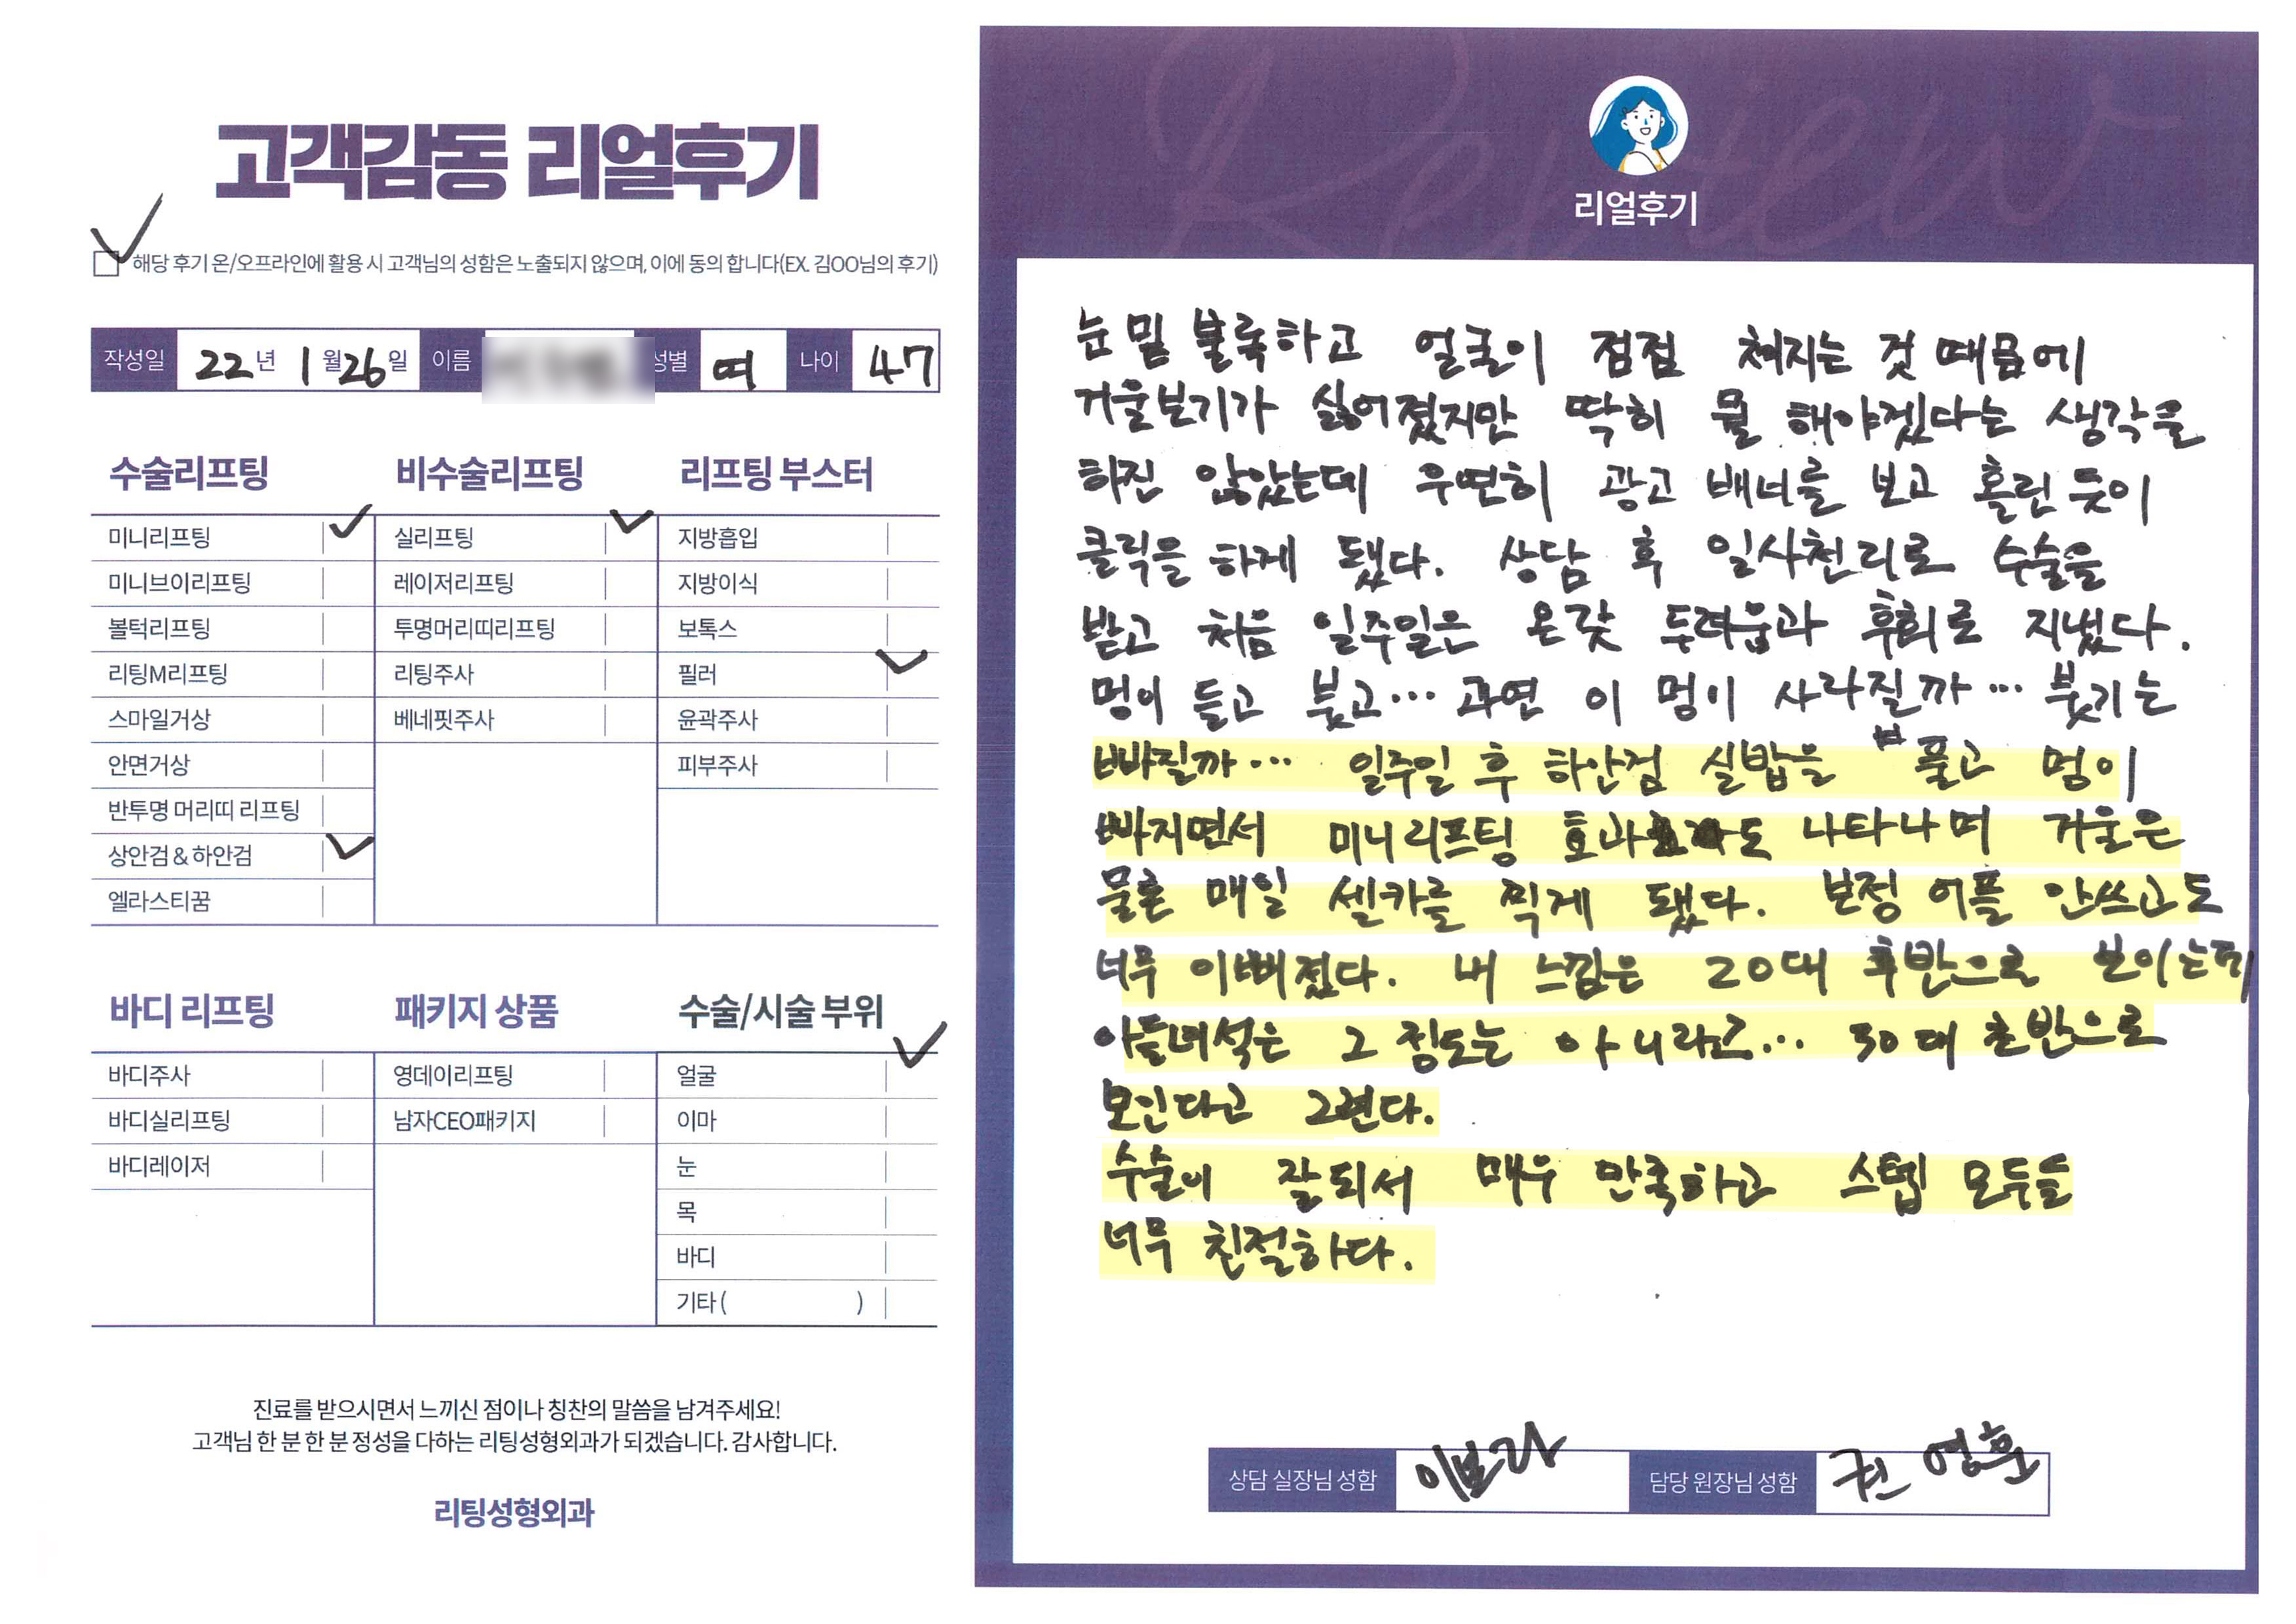 고객감동 리얼후기
해당 후기 온/오프라인에 활용 시 고객님의 성함은 노출되지 않으며, 이에 동의 합니다(EX. 김OO님의 후기)
작성일 22년 1월 26일 이름 성별 여 나이 47
수술리프팅
미니리프팅
미니브이리프팅
볼턱리프팅
리팅M리프팅
스마일거상
안면거상
반투명 머리띠 리프팅
상안검 & 하안검
엘라스티꿈
비수술리프팅
실리프팅
레이저리프팅
투명머리띠리프팅
리팅주사
베네핏주사
리프팅 부스터
지방흡입
지방이식
보톡스
필러
윤곽주사
피부주사
바디 리프팅
바디주사
바디실리프팅
바디레이저
패키지 상품
영데이리프팅
남자CEO패키지
수술/시술 부위
얼굴
이마
눈
목
바디
기타 ( )
진료를 받으시면서 느끼신 점이나 칭찬의 말씀을 남겨주세요!
고객님 한 분 한 분 정성을 다하는 리팅성형외과가 되겠습니다. 감사합니다.
리팅성형외과
Review
리얼후기
눈밑 불룩하고 얼굴이 점점 쳐지는 것 때믐에
거울보기가 싫어졌지만 딱히 뭘 해야겠다는 생각을
하진 않았는데 우연히 광고 배너를 보고 홀린 듯이
클릭을 하게 됐다. 상담 후 일사천리로 수술을
받고 처음 일주일은 온갖 두려움과 후회로 지냈다.
멍이 들고 붓고... 과연 이 멍이 사라질까... 붓기는
빠질까... 일주일 후 하안검 실밥을 풀고 멍이
빠지면서 미니리프팅 효과도 나타나며 거울은
물론 매일 셀카를 찍게 됐다. 보정 어플 안쓰고도
너무 이뻐졌다. 내 느낌은 20대 후반으로 보이는데
아들녀석은 그 정도는 아니라고... 30대 초반으로
보인다고 그런다.
수술이 잘되서 매우 만족하고 스텝 모두들
너무 친절하다.
상담 실장님 성함 이보라 담당 원장님 성함 권영훈